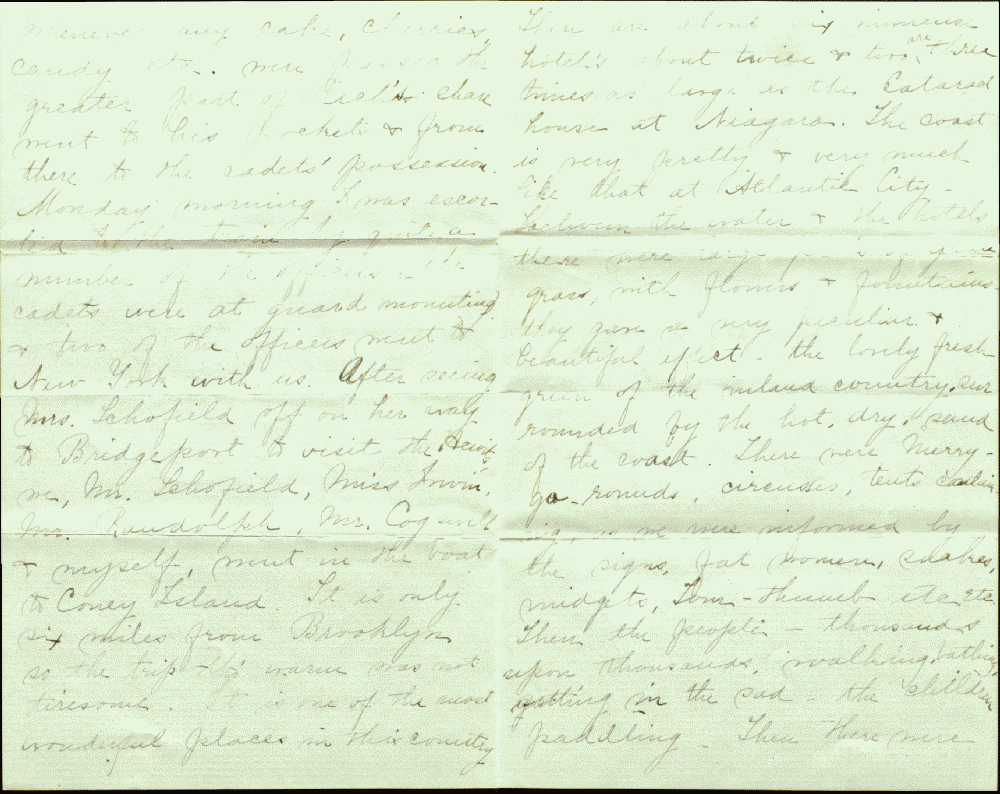 Whenever any cake, cherries
candy etc. were passed the
greater part of share
went to his pockets & from
there to the cadets' possession.
Monday morning I was escor-
ted to the train by quite a
number of the officers - the
cadets were at guard mounting
& two of the officers went to
New York with us. After seeing
Mrs. Schofield off on her way
to Bridgeport to visit the
we, Mr. Schofield, Miss Irwin,
Mr. Randolph, Mr. Cogswell
& myself, went in the boat
to Coney Island. It is only
six miles from Brooklyn
so the trip tho' warm was not
tiresome. It is one of the most
wonderful places in this country
There are about six immense
hotel's about twice & two are three
times as large as the Cataract
house at Niagara. The coast
is very pretty & very much
like that at Atlantic City -
Between the water & the hotels
there were large of
grass, with flowers & fountains.
They gave a very peculiar &
beautiful effect - the lovely fresh
green of the inland country, sur
rounded by the hot, dry, sand
of the coast. There were Merry-
go-rounds, circuses, tents contain
ing, as we were informed by
the signs, fat women, snakes,
midgets, Tom-thumb etc etc
Then the people - thousands
upon thousands, walking, bathing,
sitting in the sad - the children
paddling - Then there were